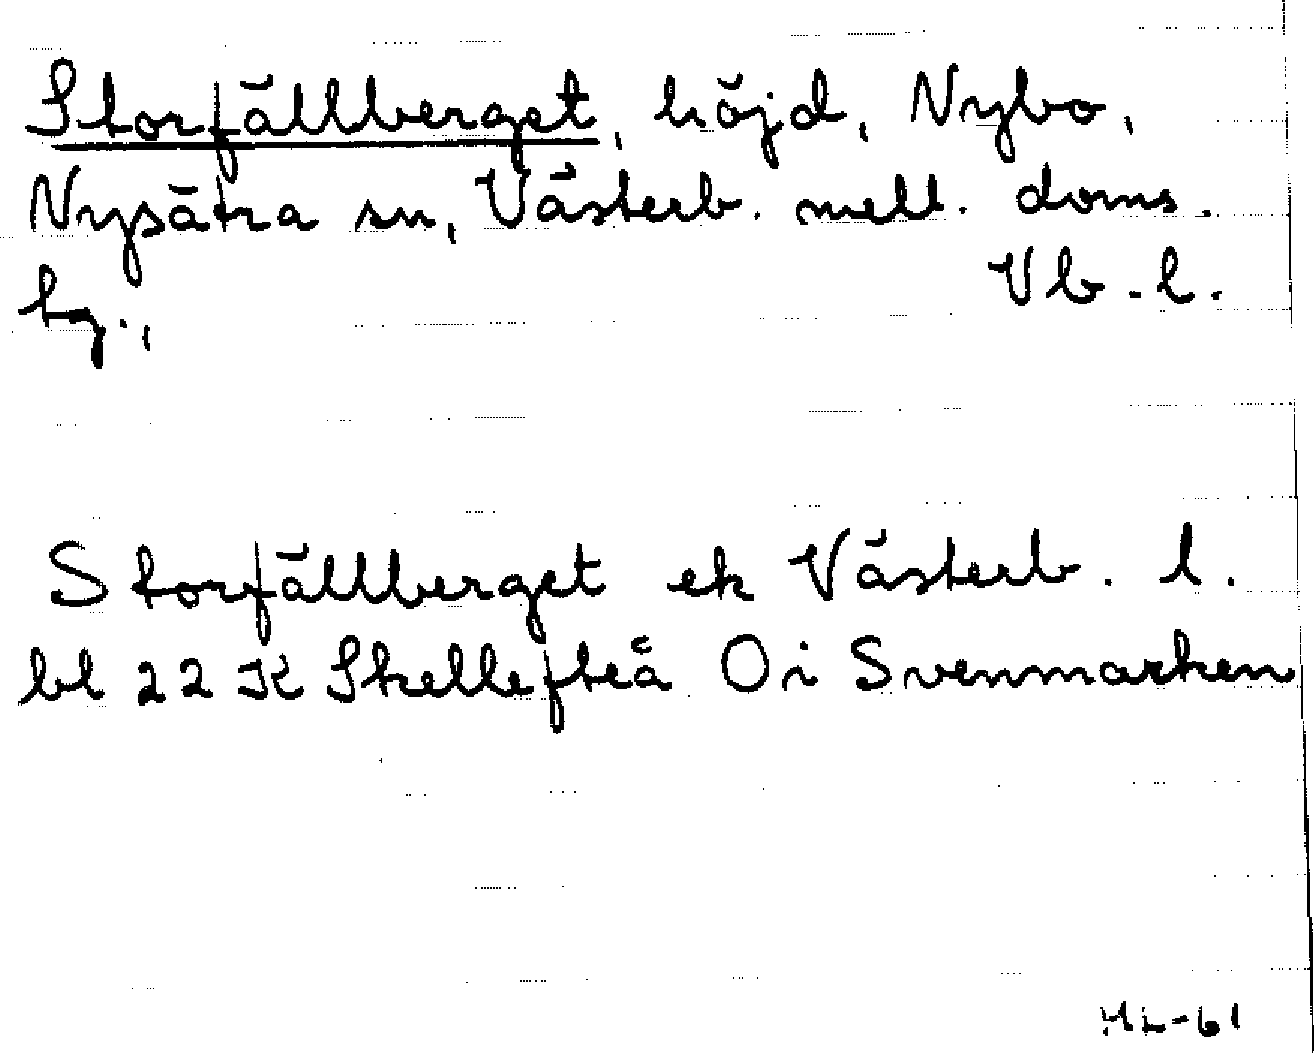 Storfällberget, höjd, Nybo,
Nysätra sn, Västerb. mell. doms.
tg., Vb. l.
Storfällberget ek Västerb. l.
bl 22 K Skellefteå O i Svenmarken
HL-61